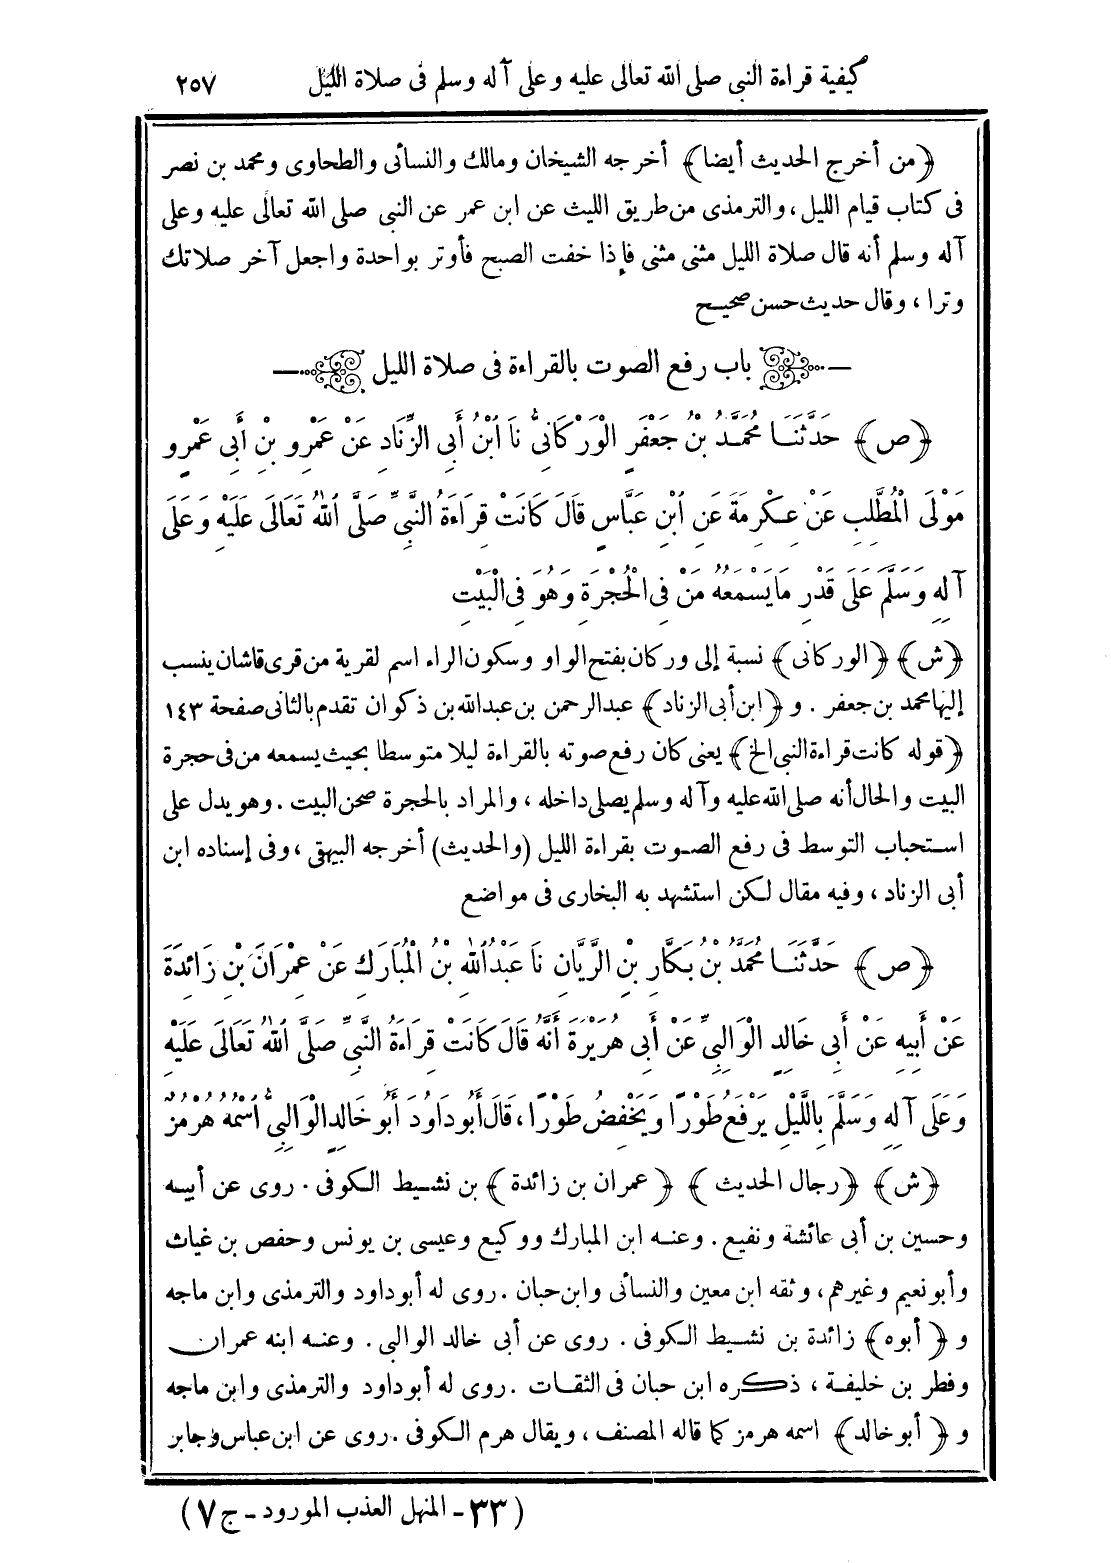 كيفية قراءة النبى صلى الله تعالى عليه وعلى آله وسلم فى صلاة الليل ٢٥٧
﴿من أخرج الحديث أيضا﴾ أخرجه الشيخان ومالك والنسائى والطحاوى ومحمد بن نصر
فى كتاب قيام الليل، والترمذى من طريق الليث عن ابن عمر عن النبى صلى الله تعالى عليه وعلى
آله وسلم أنه قال صلاة الليل مثنى مثنى فإذا خفت الصبح فأوتر بواحدة واجعل آخر صلاتك
وترا، وقال حديث حسن صحيح
— باب رفع الصوت بالقراءة فى صلاة الليل —
﴿ص﴾ حَدَّثَنَا مُحَمَّدُ بْنُ جَعْفَرٍ الْوَرْكَانِىُّ نَا ابْنُ أَبِى الزِّنَادِ عَنْ عَمْرِو بْنِ أَبِى عَمْرٍو
مَوْلَى الْمُطَّلِبِ عَنْ عِكْرِمَةَ عَنِ ابْنِ عَبَّاسٍ قَالَ كَانَتْ قِرَاءَةُ النَّبِىِّ صَلَّى اللهُ تَعَالَى عَلَيْهِ وَعَلَى
آلِهِ وَسَلَّمَ عَلَى قَدْرِ مَا يَسْمَعُهُ مَنْ فِى الْحُجْرَةِ وَهُوَ فِى الْبَيْتِ
﴿ش﴾ ﴿الوركانى﴾ نسبة إلى وركان بفتح الواو وسكون الراء اسم لقرية من قرى قاشان ينسب
إليها محمد بن جعفر. و﴿ابن أبى الزناد﴾ عبد الرحمن بن عبد الله بن ذكوان تقدم بالثانى صفحة ١٤٣
﴿قوله كانت قراءة النبى الخ﴾ يعنى كان رفع صوته بالقراءة ليلا متوسطا بحيث يسمعه من فى حجرة
البيت والحال أنه صلى الله عليه وآله وسلم يصلى داخله، والمراد بالحجرة صحن البيت. وهو يدل على
استحباب التوسط فى رفع الصوت بقراءة الليل (والحديث) أخرجه البيهقى، وفى إسناده ابن
أبى الزناد، وفيه مقال لكن استشهد به البخارى فى مواضع
﴿ص﴾ حَدَّثَنَا مُحَمَّدُ بْنُ بَكَّارِ بْنِ الرَّيَّانِ نَا عَبْدُ اللهِ بْنُ الْمُبَارَكِ عَنْ عِمْرَانَ بْنِ زَائِدَةَ
عَنْ أَبِيهِ عَنْ أَبِى خَالِدٍ الْوَالِبِىِّ عَنْ أَبِى هُرَيْرَةَ أَنَّهُ قَالَ كَانَتْ قِرَاءَةُ النَّبِىِّ صَلَّى اللهُ تَعَالَى عَلَيْهِ
وَعَلَى آلِهِ وَسَلَّمَ بِاللَّيْلِ يَرْفَعُ طَوْرًا وَيَخْفِضُ طَوْرًا، قَالَ أَبُو دَاوُدَ أَبُو خَالِدٍ الْوَالِبِىُّ اسْمُهُ هُرْمُزُ
﴿ش﴾ ﴿رجال الحديث﴾ ﴿عمران بن زائدة﴾ بن نشيط الكوفى. روى عن أبيه
وحسين بن أبى عائشة ونفيع. وعنه ابن المبارك ووكيع وعيسى بن يونس وحفص بن غياث
وأبو نعيم وغيرهم، وثقه ابن معين والنسائى وابن حبان. روى له أبو داود والترمذى وابن ماجه
و﴿أبوه﴾ زائدة بن نشيط الكوفى. روى عن أبى خالد الوالبى. وعنه ابنه عمران
وفطر بن خليفة، ذكره ابن حبان فى الثقات. روى له أبو داود والترمذى وابن ماجه
و﴿أبو خالد﴾ اسمه هرمز كما قاله المصنف، ويقال هرم الكوفى. روى عن ابن عباس وجابر
(٣٣ - المنهل العذب المورود - ج ٧)